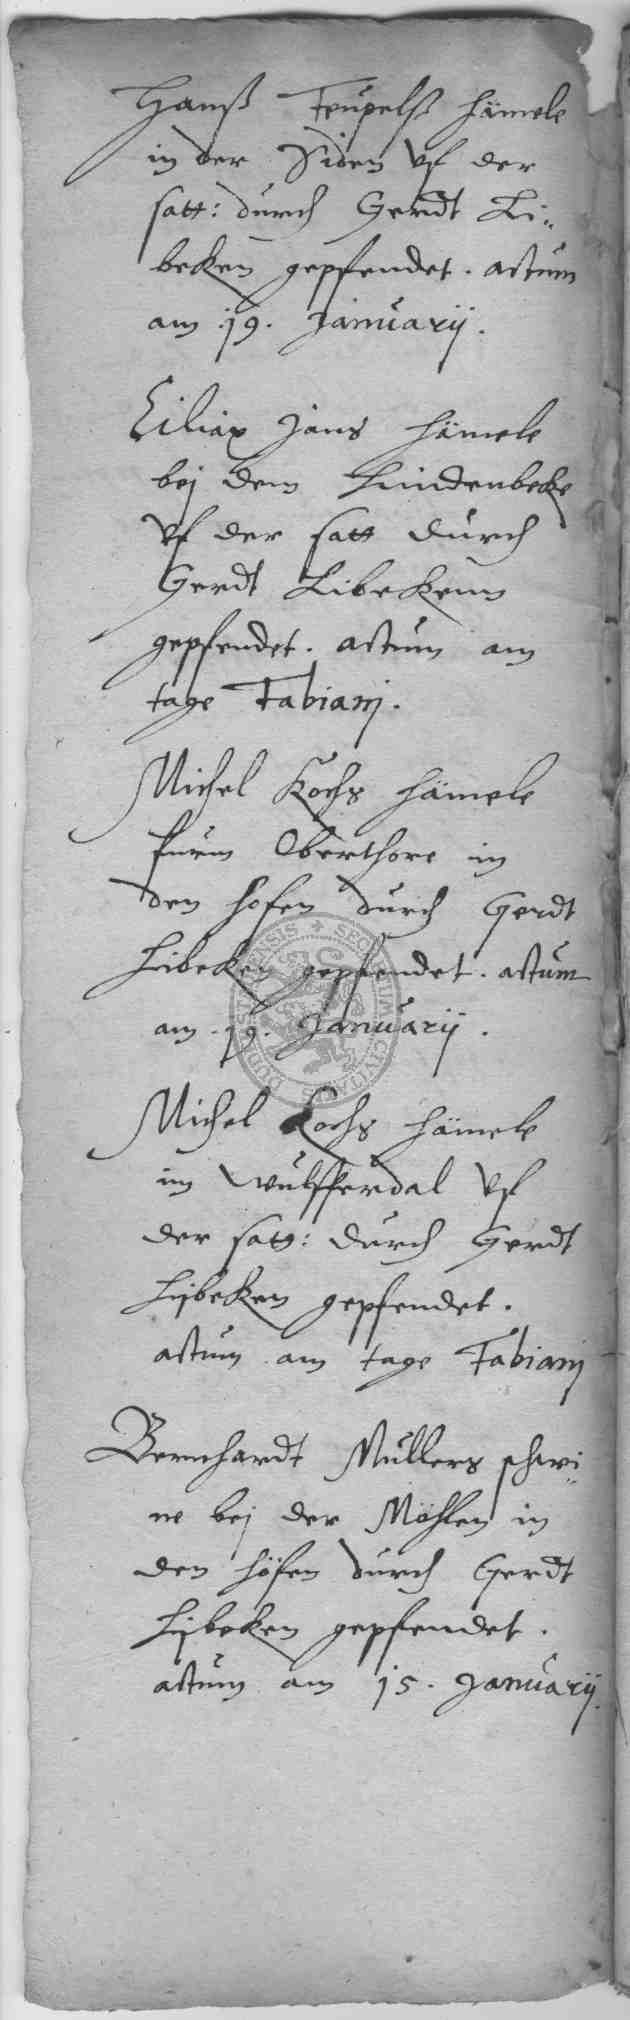 Hanß Teupelß hämele
in der Siden vf der
satt: durch Gerdt Li„
beken gepfendet. actum
am .19. Januarij.
Ciliax Jans hämele
bej dem Lindenbeke
vf der satt durch
Gerdt Libekenn
gepfendet. actum am
tage Fabianj.
Michel Kochs hämele
furm Oberthore in
den hofen durch Gerdt
Libeken gepfendet. actum
am .19. Januarij.
Michel Kochs hämele
im Wulfferdal vf
der satt: durch Gerdt
Lijbeken gepfendet.
actum am tage Fabianj
Bernhardt Mullers schwi„
ne bej der Möhlen in
den höfen durch Gerdt
Lijbeken gepfendet.
actum am 15. Januarij.
SECRETUM CIVITATIS